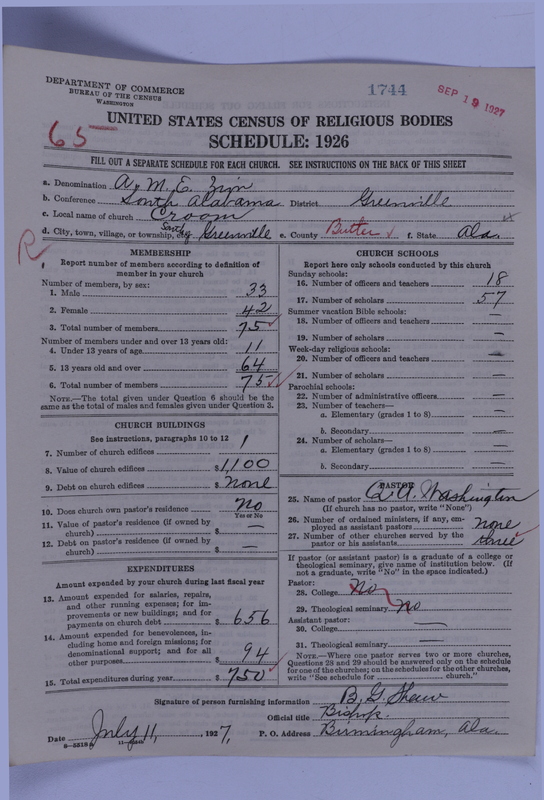 DEPARTMENT OF COMMERCE
BUREAU OF THE CENSUS
WASHINGTON
1744
SEP 19 1927
UNITED STATES CENSUS OF RELIGIOUS BODIES
SCHEDULE: 1926
65
FILL OUT A SEPARATE SCHEDULE FOR EACH CHURCH. SEE INSTRUCTIONS ON THE BACK OF THIS SHEET
a. Denomination A. M. E. Zion
b. Conference South Alabama District Greenville
c. Local name of church Croom
d. City, town, village, or township, South of Greenville e. County Butler f. State Ala.
R
MEMBERSHIP
Report number of members according to definition of member in your church
Number of members, by sex:
1. Male 33
2. Female 42
3. Total number of members 75
Number of members under and over 13 years old:
4. Under 13 years of age 11
5. 13 years old and over 64
6. Total number of members 75
NOTE.—The total given under Question 6 should be the same as the total of males and females given under Question 3.
CHURCH BUILDINGS
See instructions, paragraphs 10 to 12
7. Number of church edifices 1
8. Value of church edifices $1,100
9. Debt on church edifices $ None
10. Does church own pastor's residence? No
Yes or No
11. Value of pastor's residence (if owned by church) $ —
12. Debt on pastor's residence (if owned by church) $ —
EXPENDITURES
Amount expended by your church during last fiscal year
13. Amount expended for salaries, repairs, and other running expenses; for improvements or new buildings; and for payments on church debt $ 656
14. Amount expended for benevolences, including home and foreign missions; for denominational support; and for all other purposes $ 94
15. Total expenditures during year $ 750
CHURCH SCHOOLS
Report here only schools conducted by this church
Sunday schools:
16. Number of officers and teachers 18
17. Number of scholars 57
Summer vacation Bible schools:
18. Number of officers and teachers —
19. Number of scholars —
Week-day religious schools:
20. Number of officers and teachers —
21. Number of scholars —
Parochial schools:
22. Number of administrative officers —
23. Number of teachers—
a. Elementary (grades 1 to 8) —
b. Secondary —
24. Number of scholars—
a. Elementary (grades 1 to 8) —
b. Secondary —
PASTOR
25. Name of pastor Washington
(If church has no pastor, write "None")
26. Number of ordained ministers, if any, employed as assistant pastors none
27. Number of other churches served by the pastor or his assistants
If pastor (or assistant pastor) is a graduate of a college or theological seminary, give name of institution below. (If not a graduate, write "No" in the space indicated.)
Pastor:
28. College No
29. Theological seminary No
Assistant pastor:
30. College —
31. Theological seminary —
NOTE.—Where one pastor serves two or more churches, Questions 28 and 29 should be answered only on the schedule for one of the churches; on the schedules for the other churches, write "See schedule for church."
Signature of person furnishing information B. G. Shaw
Official title Bishop.
Date July 11, 1927. P. O. Address Birmingham, Ala.